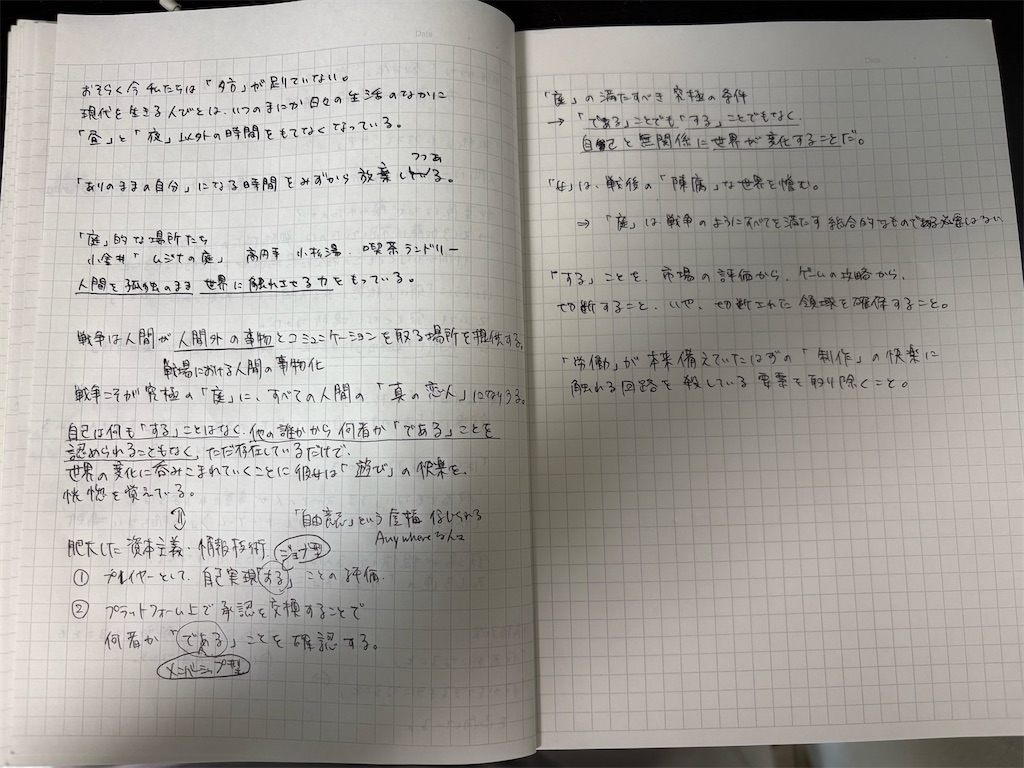 Date
おそらく今私たちは「夕方」が足りていない。
現代を生きる人びとは、いつのまにか日々の生活のなかに
「昼」と「夜」以外の時間をもてなくなっている。
「ありのままの自分」になる時間をみずから放棄しつつある。
「庭」的な場所たち
小金井「ムジナの庭」 高円寺 小杉湯、喫茶ランドリー
人間を孤独のまま世界に触れさせる力をもっている。
戦争は人間が人間外の事物とコミュニケーションを取る場所を提供する。
戦場における人間の事物化
戦争こそが究極の「庭」に、すべての人間の「真の恋人」になりうる。
自己は何も「する」ことはなく、他の誰かから何者か「である」ことを
認められることもなく、ただ存在しているだけで、
世界の変化に呑みこまれていくことに彼女は「遊び」の快楽を、
恍惚を覚えている。
「自由意志」という虚構 信じられる
Anywhereな人々
肥大した資本主義・情報技術、ジョブ型
① プレイヤーとして、自己実現「する」ことの評価、
② プラットフォーム上で承認を交換することで
何者か「である」ことを確認する。
メンバーシップ型
Date
「庭」の満たすべき究極の条件
→ 「である」ことでも「する」ことでもなく、
自己と無関係に世界が変化することだ。
「女」は、戦後の「陳腐」な世界を憎む。
⇒ 「庭」は戦争のようにすべてを満たす総合的なものである必要はない
「する」ことを、市場の評価から、ゲームの攻略から、
切断すること、いや、切断された領域を確保すること。
「労働」が本来備えていたはずの「制作」の快楽に
触れる回路を殺している要素を取り除くこと。